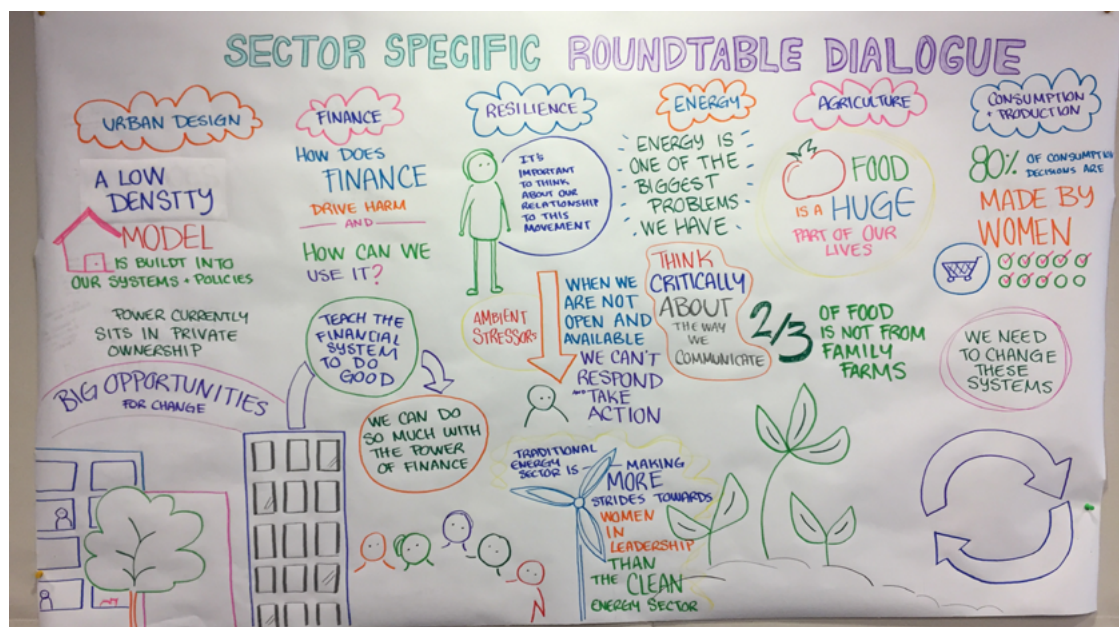 SECTOR SPECIFIC ROUNDTABLE DIALOGUE
URBAN DESIGN
A LOW
DENSTTY
MODEL
IS BUILDT INTO
OUR SYSTEMS + POLICIES
POWER CURRENTLY
SITS IN PRIVATE
OWNERSHIP
BIG OPPORTUNITIES
FOR CHANGE
FINANCE
HOW DOES
FINANCE
DRIVE HARM
AND
HOW CAN WE
USE IT?
TEACH THE
FINANCIAL
SYSTEM
TO DO
GOOD
WE CAN DO
SO MUCH WITH
THE POWER
OF FINANCE
RESILIENCE
IT'S
IMPORTANT
TO THINK
ABOUT OUR
RELATIONSHIP
TO THIS
MOVEMENT
AMBIENT
STRESSORS
WHEN WE
ARE NOT
OPEN AND
AVAILABLE
WE CAN'T
RESPOND
AND TAKE
ACTION
ENERGY
ENERGY IS
ONE OF THE
BIGGEST
PROBLEMS
WE HAVE
THINK
CRITICALLY
ABOUT
THE WAY
WE
COMMUNICATE
TRADITIONAL
ENERGY
SECTOR IS
MAKING
MORE
STRIDES TOWARDS
WOMEN
IN
LEADERSHIP
THAN
THE CLEAN
ENERGY SECTOR
AGRICULTURE
FOOD
IS A HUGE
PART OF OUR
LIVES
2/3 OF FOOD
IS NOT FROM
FAMILY
FARMS
CONSUMPTION
+ PRODUCTION
80% OF CONSUMPTION
DECISIONS ARE
MADE BY
WOMEN
WE NEED
TO CHANGE
THESE
SYSTEMS